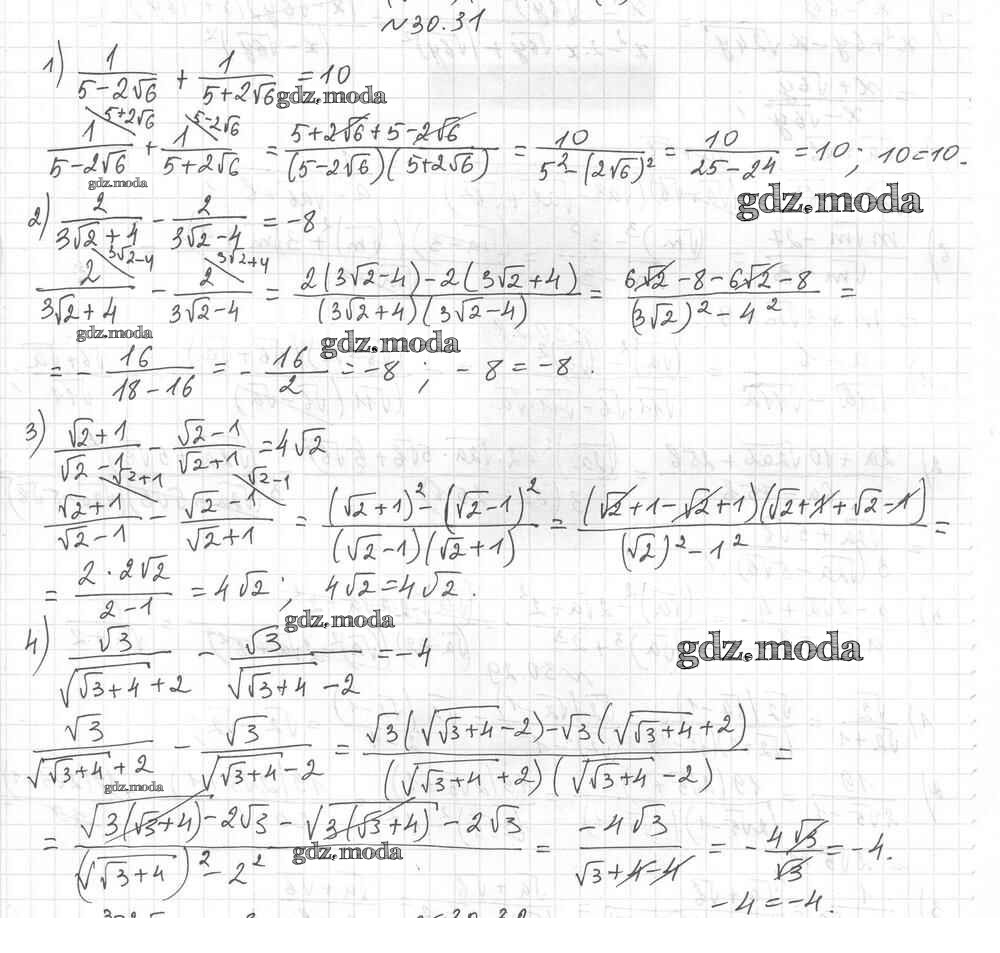 №30.31
1) 1/(5-2√6) + 1/(5+2√6) = 10
gdz.moda
1/(5-2√6) (5+2√6) + 1/(5+2√6) (5-2√6) = (5+2√6+5-2√6)/((5-2√6)(5+2√6)) = 10/(5²-(2√6)²) = 10/(25-24) = 10; 10=10.
gdz.moda
gdz.moda
2) 2/(3√2+4) - 2/(3√2-4) = -8
2/(3√2+4) (3√2-4) - 2/(3√2-4) (3√2+4) = (2(3√2-4)-2(3√2+4))/((3√2+4)(3√2-4)) = (6√2-8-6√2-8)/((3√2)²-4²) =
gdz.moda
gdz.moda
= - 16/(18-16) = - 16/2 = -8 ; -8=-8.
3) (√2+1)/(√2-1) - (√2-1)/(√2+1) = 4√2
(√2+1)/(√2-1) (√2+1) - (√2-1)/(√2+1) (√2-1) = ((√2+1)²-(√2-1)²)/((√2-1)(√2+1)) = ((√2+1-√2+1)(√2+1+√2-1))/((√2)²-1²) =
= (2·2√2)/(2-1) = 4√2; 4√2=4√2.
gdz.moda
gdz.moda
4) √3/(√(√3+4)+2) - √3/(√(√3+4)-2) = -4
√3/(√(√3+4)+2) - √3/(√(√3+4)-2) = (√3(√(√3+4)-2)-√3(√(√3+4)+2))/((√(√3+4)+2)(√(√3+4)-2)) =
gdz.moda
= (√(3(√3+4))-2√3-√(3(√3+4))-2√3)/((√(√3+4))²-2²) = (-4√3)/(√3+4-4) = - 4√3/√3 = -4.
gdz.moda
-4=-4.